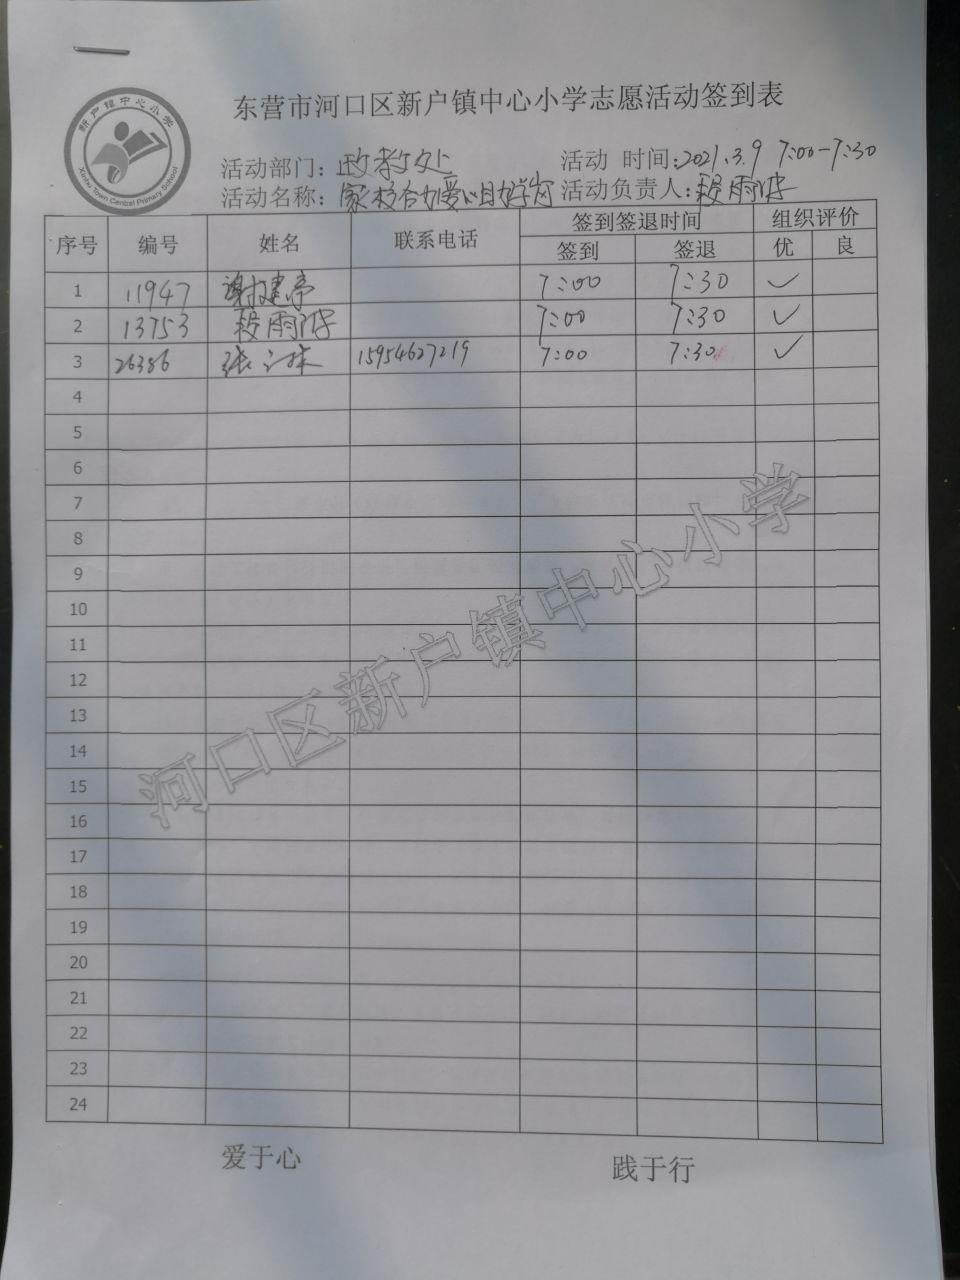 新户镇中心小学
Xinhu Town Central Primary School
东营市河口区新户镇中心小学志愿活动签到表
活动部门：政教处 活动 时间：2021.3.9 7:00-7:30
活动名称：家校合力爱心助学岗 活动负责人：段雨
序号 编号 姓名 联系电话 签到签退时间 组织评价
签到 签退 优 良
1 11947 谢建亭 7:00 7:30 ✓
2 13753 段雨 7:00 7:30 ✓
3 26386 张 15954627219 7:00 7:30 ✓
4
5
6
7
8
9
10
11
12
13
14
15
16
17
18
19
20
21
22
23
24
河口区新户镇中心小学
爱于心 践于行